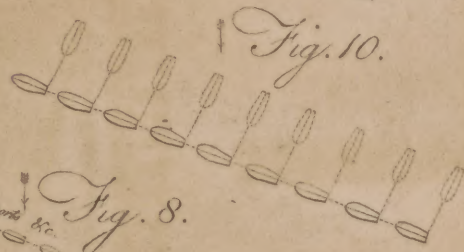 Fig. 10.
Fig. 8.
&c.